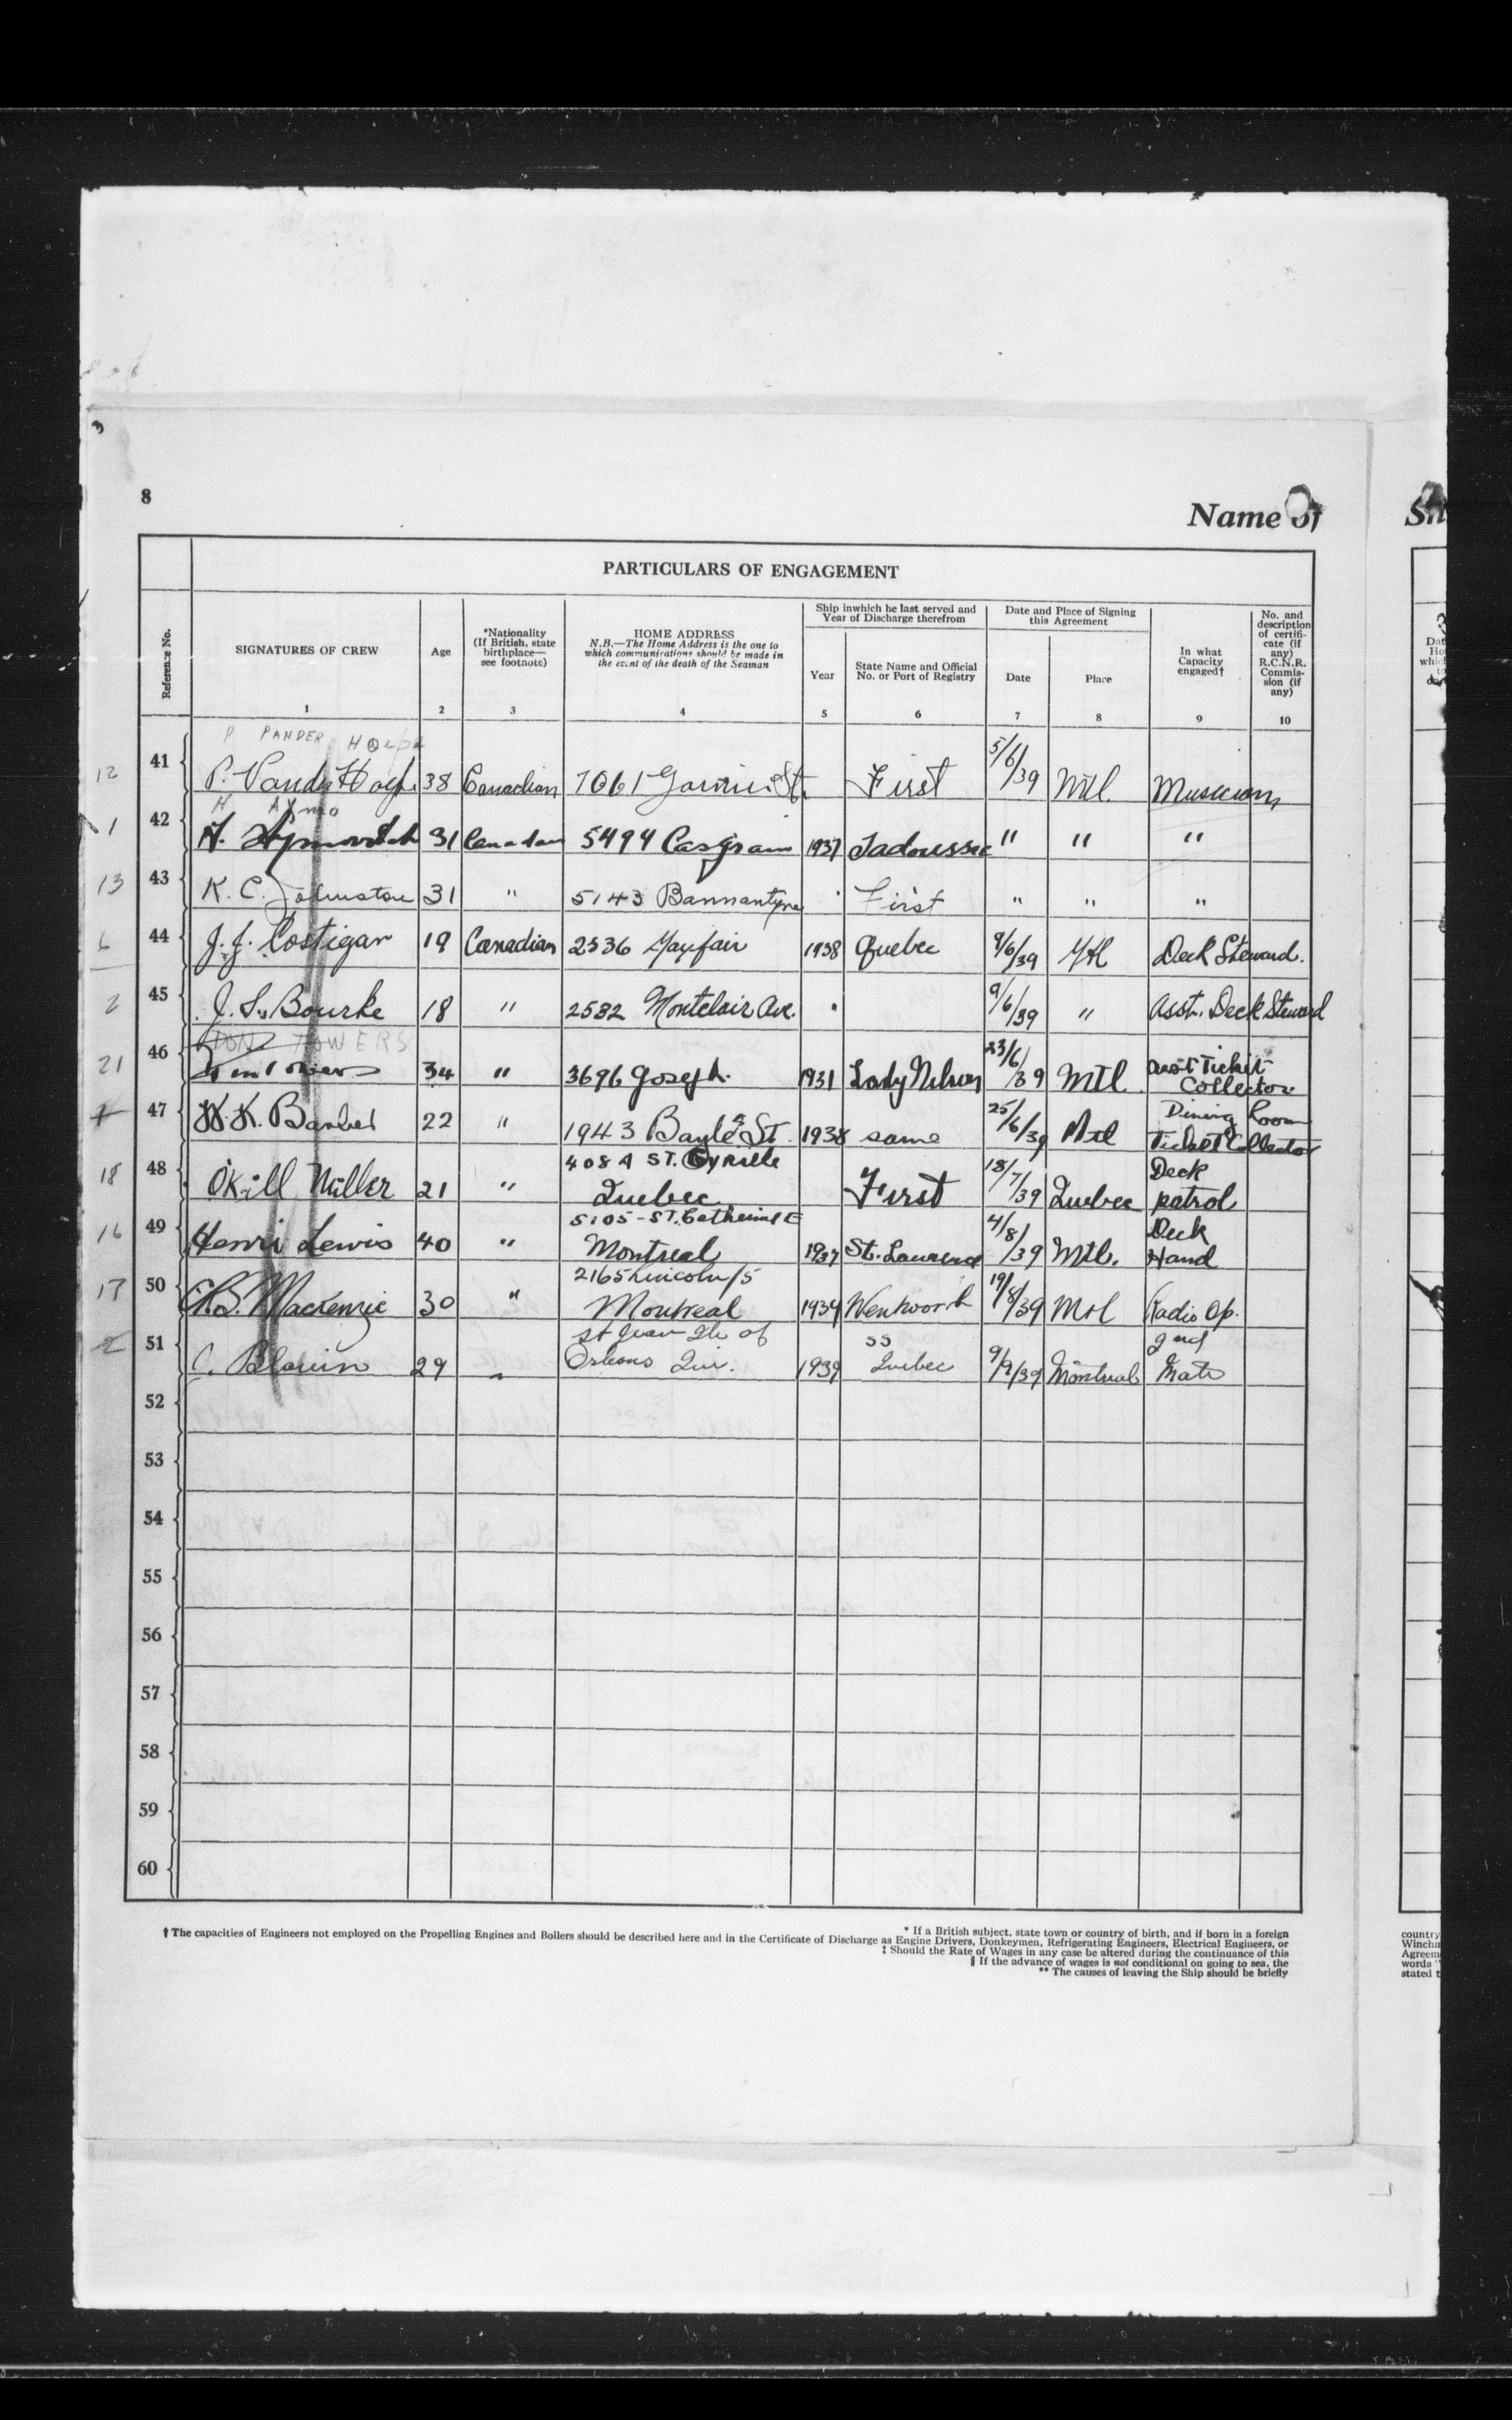 3
8
Name of
PARTICULARS OF ENGAGEMENT
Reference No.
SIGNATURES OF CREW
1
Age
2
*Nationality
(If British, state
birthplace—
see footnote)
3
HOME ADDRESS
N.B.—The Home Address is the one to
which communications should be made in
the event of the death of the Seaman
4
Ship in which he last served and
Year of Discharge therefrom
Year
5
State Name and Official
No. or Port of Registry
6
Date and Place of Signing
this Agreement
Date
7
Place
8
In what
Capacity
engaged†
9
No. and
description
of certifi-
cate (if
any)
R.C.N.R.
Commis-
sion (if
any)
10
P PANDER
12 41 38 Canadian 7061 St. First 5/6/39 Mtl. Musician
1 42 H. 31 5494 Casgrain 1937 Tadoussac " " "
13 43 K. C. Johnston 31 " 5143 Bannantyne First " " "
6 44 J. J. Costigan 19 Canadian 2336 Mayfair 1938 Quebec 9/6/39 Mtl Deck Steward.
2 45 J. S. Bourke 18 " 2582 Montclair Ave. 9/6/39 " Asst. Deck Steward
TOWERS
21 46 34 " 3696 Joseph. 1931 Lady Nelson 23/6/39 Mtl Asst Ticket
Collector
47 22 " 1943 St. 1938 same 25/6/39 Mtl Dining Room
Ticket Collector
18 48 Okill Miller 21 " 408A ST. Cyrille
Quebec First 18/7/39 Quebec Deck
patrol
16 49 Henri Lewis 40 " 5105 - ST. Catherine E
Montreal 1937 St. Lawrence 4/8/39 Mtl. Deck
Hand
17 50 Mackenzie 30 " 2165 Lincoln
Montreal 1939 Wentworth 19/8/39 Mtl Radio Op.
2 51 C. Blouin 29 " St Jean Ile of
Orleans 1939 SS
Quebec 9/9/39 Montreal 2nd
Mate
52
53
54
55
56
57
58
59
60
† The capacities of Engineers not employed on the Propelling Engines and Boilers should be described here and in the Certificate of Discharge as Engine Drivers, Donkeymen, Refrigerating Engineers, Electrical Engineers, or
* If a British subject, state town or country of birth, and if born in a foreign
‡ Should the Rate of Wages in any case be altered during the continuance of this
‖ If the advance of wages is not conditional on going to sea, the
** The causes of leaving the Ship should be briefly
country
Agreem
words
stated